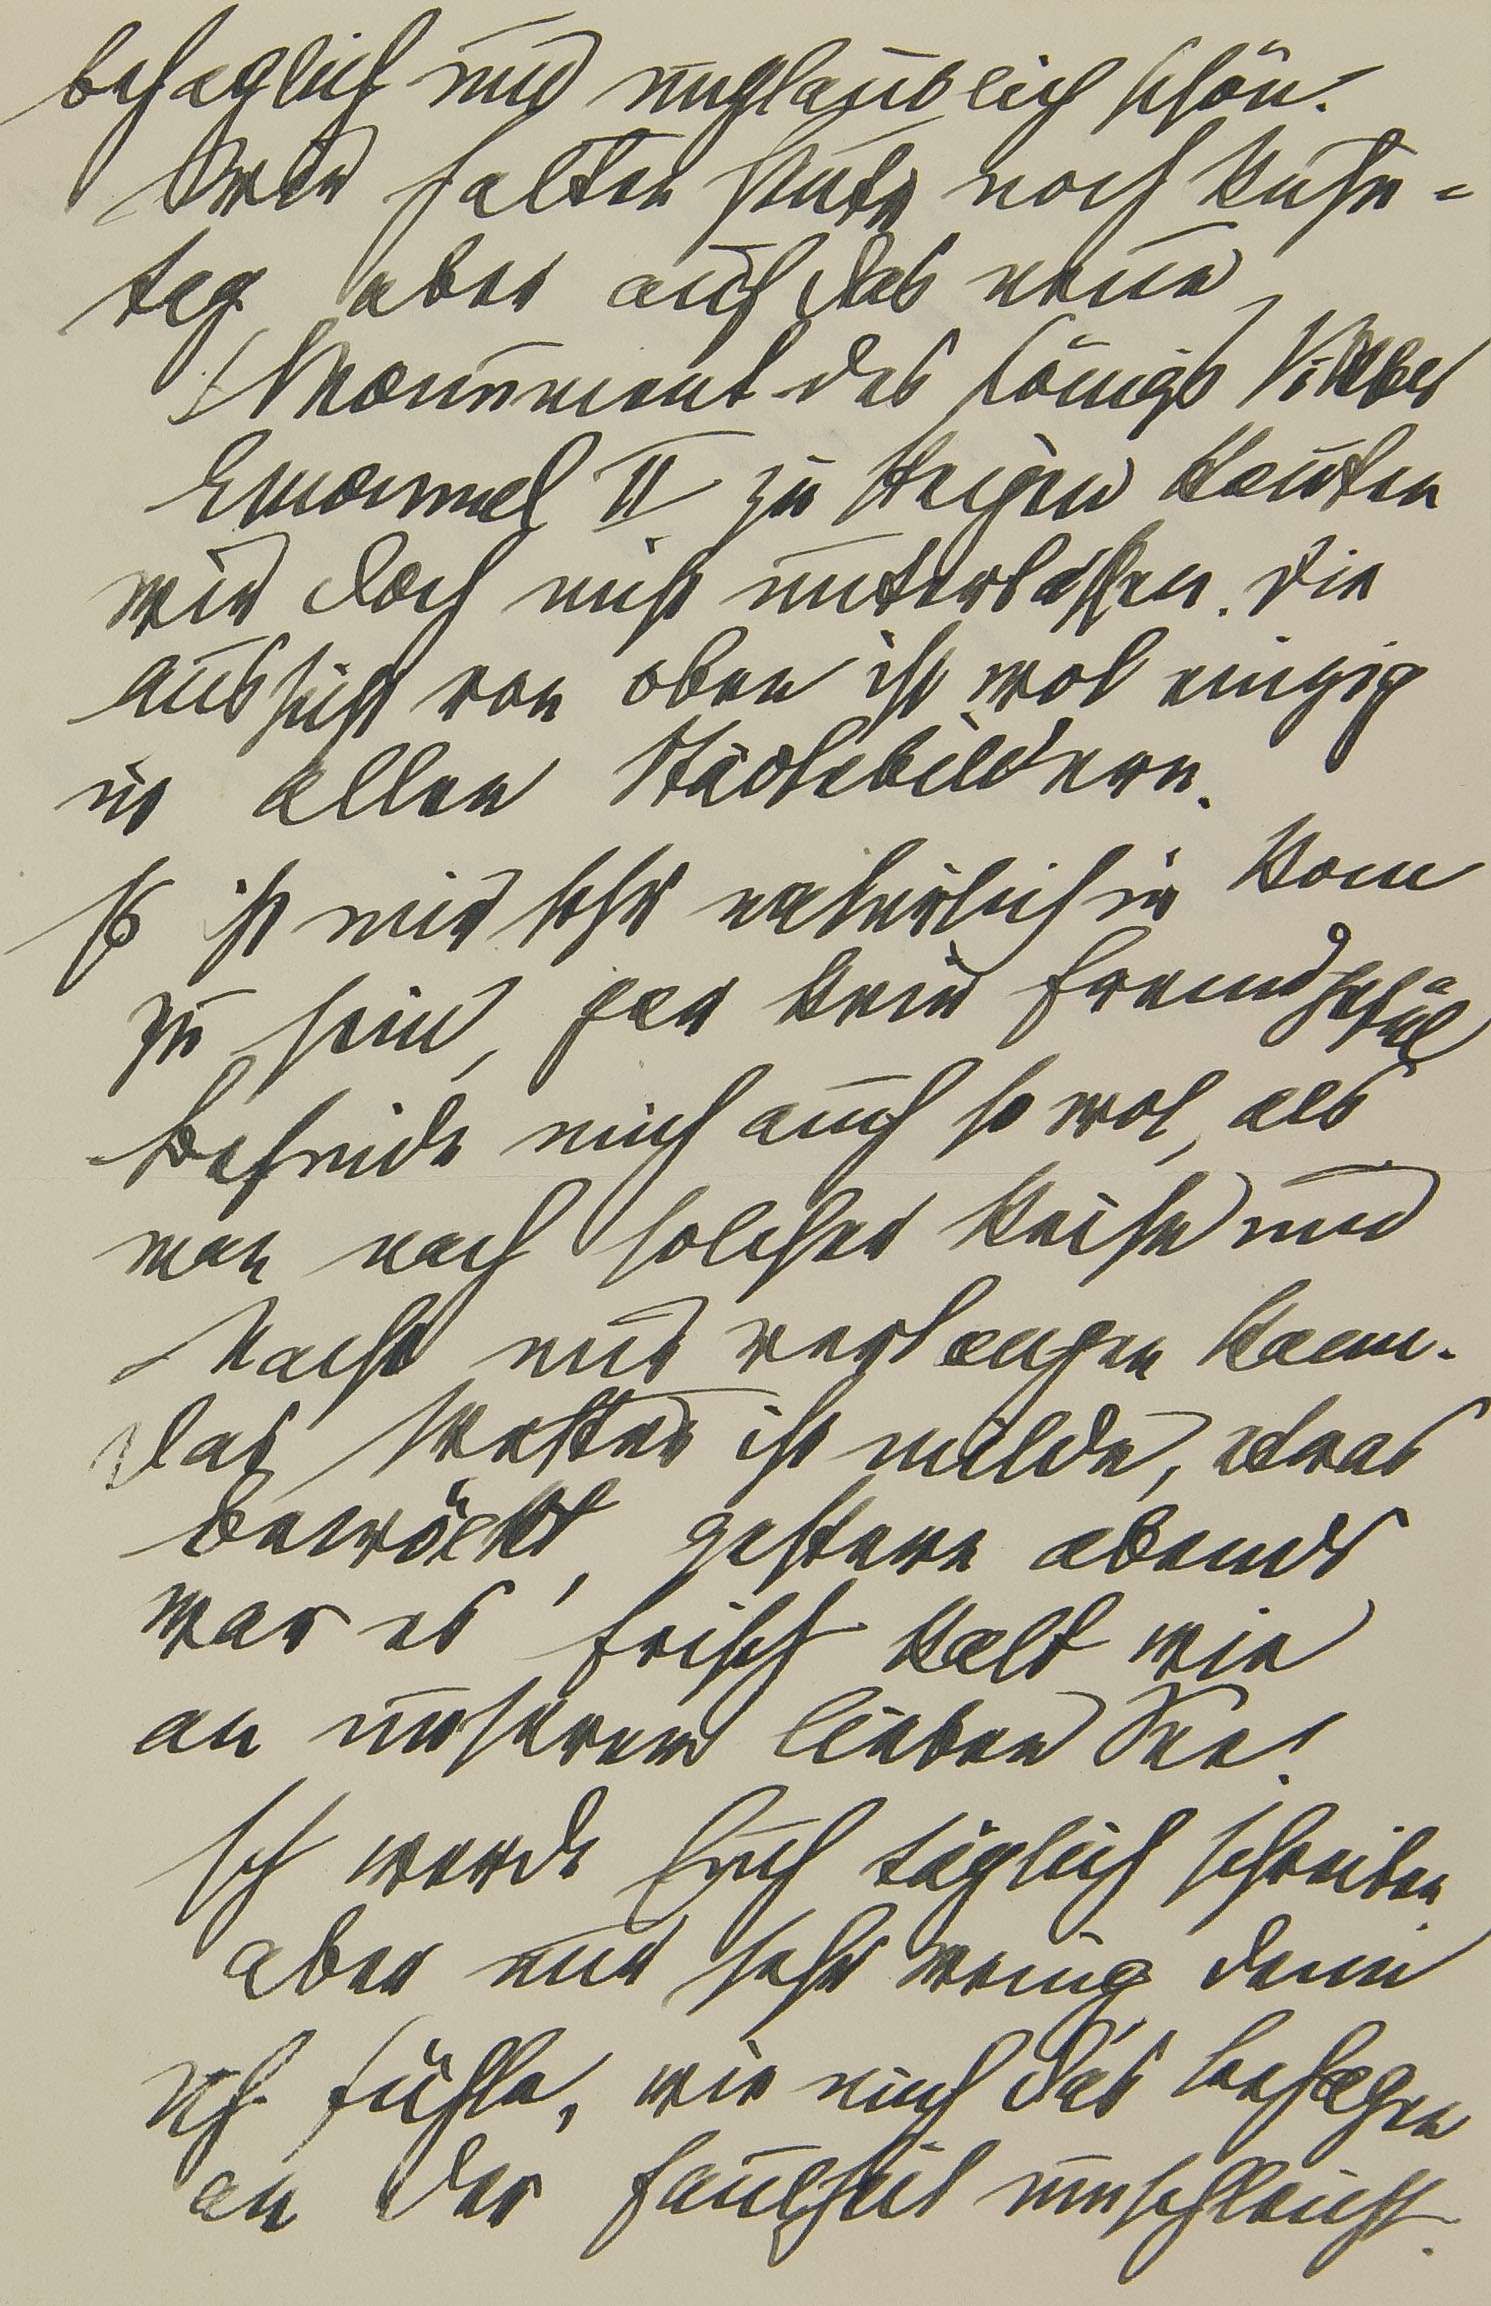 behaglich und unglaublich schön.
Wir halten heute noch Ruhe-
tag aber auf das neue
Monument des Königs Viktor
Emanuel II zu steigen konnten
wir doch nicht unterlassen. Die
Aussicht von oben ist wol einzig
in allen Städtebildern.
Es ist mir sehr natürlich in Rom
zu sein, gar kein Fremdgefühl
befinde mich auch so wol, als
man nach solcher Reise und
Nacht nur verlangen kann.
Das Wetter ist milde, etwas
bewölkt, gestern abends
war es frisch kalt wie
an unserem lieben See!
Ich werde Euch täglich schreiben
aber nur sehr wenig denn
ich fühle, wie mich das Behagen
an der Faulheit umschleicht.